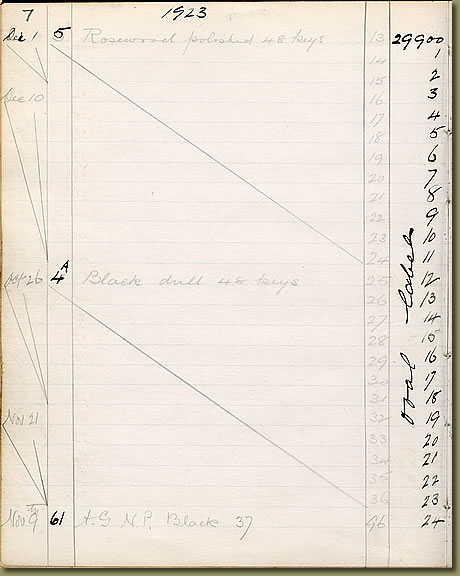 7 1923
Dec 1 5 Rosewood polished 48 keys 13 29900
14 1
15 2
Dec 10 16 3
17 4
18 5
19 6
20 7
21 8
22 9
23 10
24 11
Oct 26 4A Black dull 48 keys 25 12
26 13
27 14
28 15
29 16
30 17
31 18
Nov 21 32 19
33 20
34 21
35 22
36 23
Nov 9 61 A.G. N.P. Black 37 96 24
oval labels